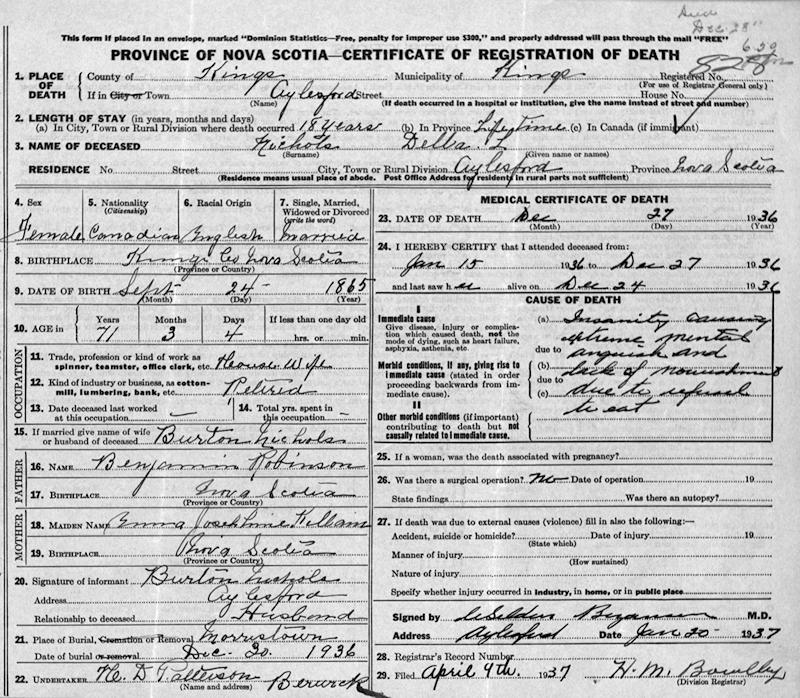 Died
Dec. 28"
This form if placed in an envelope, marked "Dominion Statistics—Free, penalty for improper use $300," and properly addressed will pass through the mail "FREE"
PROVINCE OF NOVA SCOTIA—CERTIFICATE OF REGISTRATION OF DEATH
1. PLACE OF DEATH County of Kings Municipality of Kings Registered No.
(For use of Registrar General only)
If in City or Town Aylesford Street House No.
(Name) (If death occurred in a hospital or institution, give the name instead of street and number)
2. LENGTH OF STAY (in years, months and days)
(a) In City, Town or Rural Division where death occurred 18 years (b) In Province Lifetime (c) In Canada (if immigrant)
3. NAME OF DECEASED Nichols Della L
(Surname) (Given name or names)
RESIDENCE No. Street City, Town or Rural Division Aylesford Province Nova Scotia
(Residence means usual place of abode. Post Office Address for residents in rural parts not sufficient)
4. Sex 5. Nationality (Citizenship) 6. Racial Origin 7. Single, Married, Widowed or Divorced (write the word)
Female Canadian English Married
8. BIRTHPLACE Kings Co Nova Scotia
(Province or Country)
9. DATE OF BIRTH Sept 24 1865
(Month) (Day) (Year)
10. AGE in Years Months Days If less than one day old
71 3 4 hrs. or min.
OCCUPATION
11. Trade, profession or kind of work as spinner, teamster, office clerk, etc. House Wife
12. Kind of industry or business, as cotton-mill, lumbering, bank, etc. Retired
13. Date deceased last worked at this occupation — 14. Total yrs. spent in this occupation —
15. If married give name of wife or husband of deceased Burton Nichols
FATHER
16. NAME Benjamin Robinson
17. BIRTHPLACE Nova Scotia
(Province or Country)
MOTHER
18. MAIDEN NAME Emma Josephine Killam
19. BIRTHPLACE Nova Scotia
(Province or Country)
20. Signature of informant Burton Nichols
Address Aylesford
Relationship to deceased Husband
21. Place of Burial, Cremation or Removal Morristown
Date of burial or removal Dec. 30. 1936
22. UNDERTAKER H. D Patterson Berwick
(Name and address)
MEDICAL CERTIFICATE OF DEATH
23. DATE OF DEATH Dec 27 1936
(Month) (Day) (Year)
24. I HEREBY CERTIFY that I attended deceased from:
Jan 15 1936 to Dec 27 1936
and last saw her alive on Dec 24 1936
CAUSE OF DEATH
I
Immediate cause
Give disease, injury or complication which caused death, not the mode of dying, such as heart failure, asphyxia, asthenia, etc.
Morbid conditions, if any, giving rise to immediate cause (stated in order proceeding backwards from immediate cause).
II
Other morbid conditions (if important) contributing to death but not causally related to immediate cause.
(a) Insanity causing
extreme mental
due to anguish and
(b) lack of nourishment
due to
(c) due to refusal
to eat
25. If a woman, was the death associated with pregnancy?
26. Was there a surgical operation? No Date of operation 19
State findings Was there an autopsy?
27. If death was due to external causes (violence) fill in also the following:—
Accident, suicide or homicide? Date of injury 19
(State which)
Manner of injury
(How sustained)
Nature of injury
Specify whether injury occurred in industry, in home, or in public place
Signed by M.D.
Address Aylesford Date Jan 20 1937
28. Registrar's Record Number
29. Filed April 9th. 1937 H. M. Bowlby
(Division Registrar)